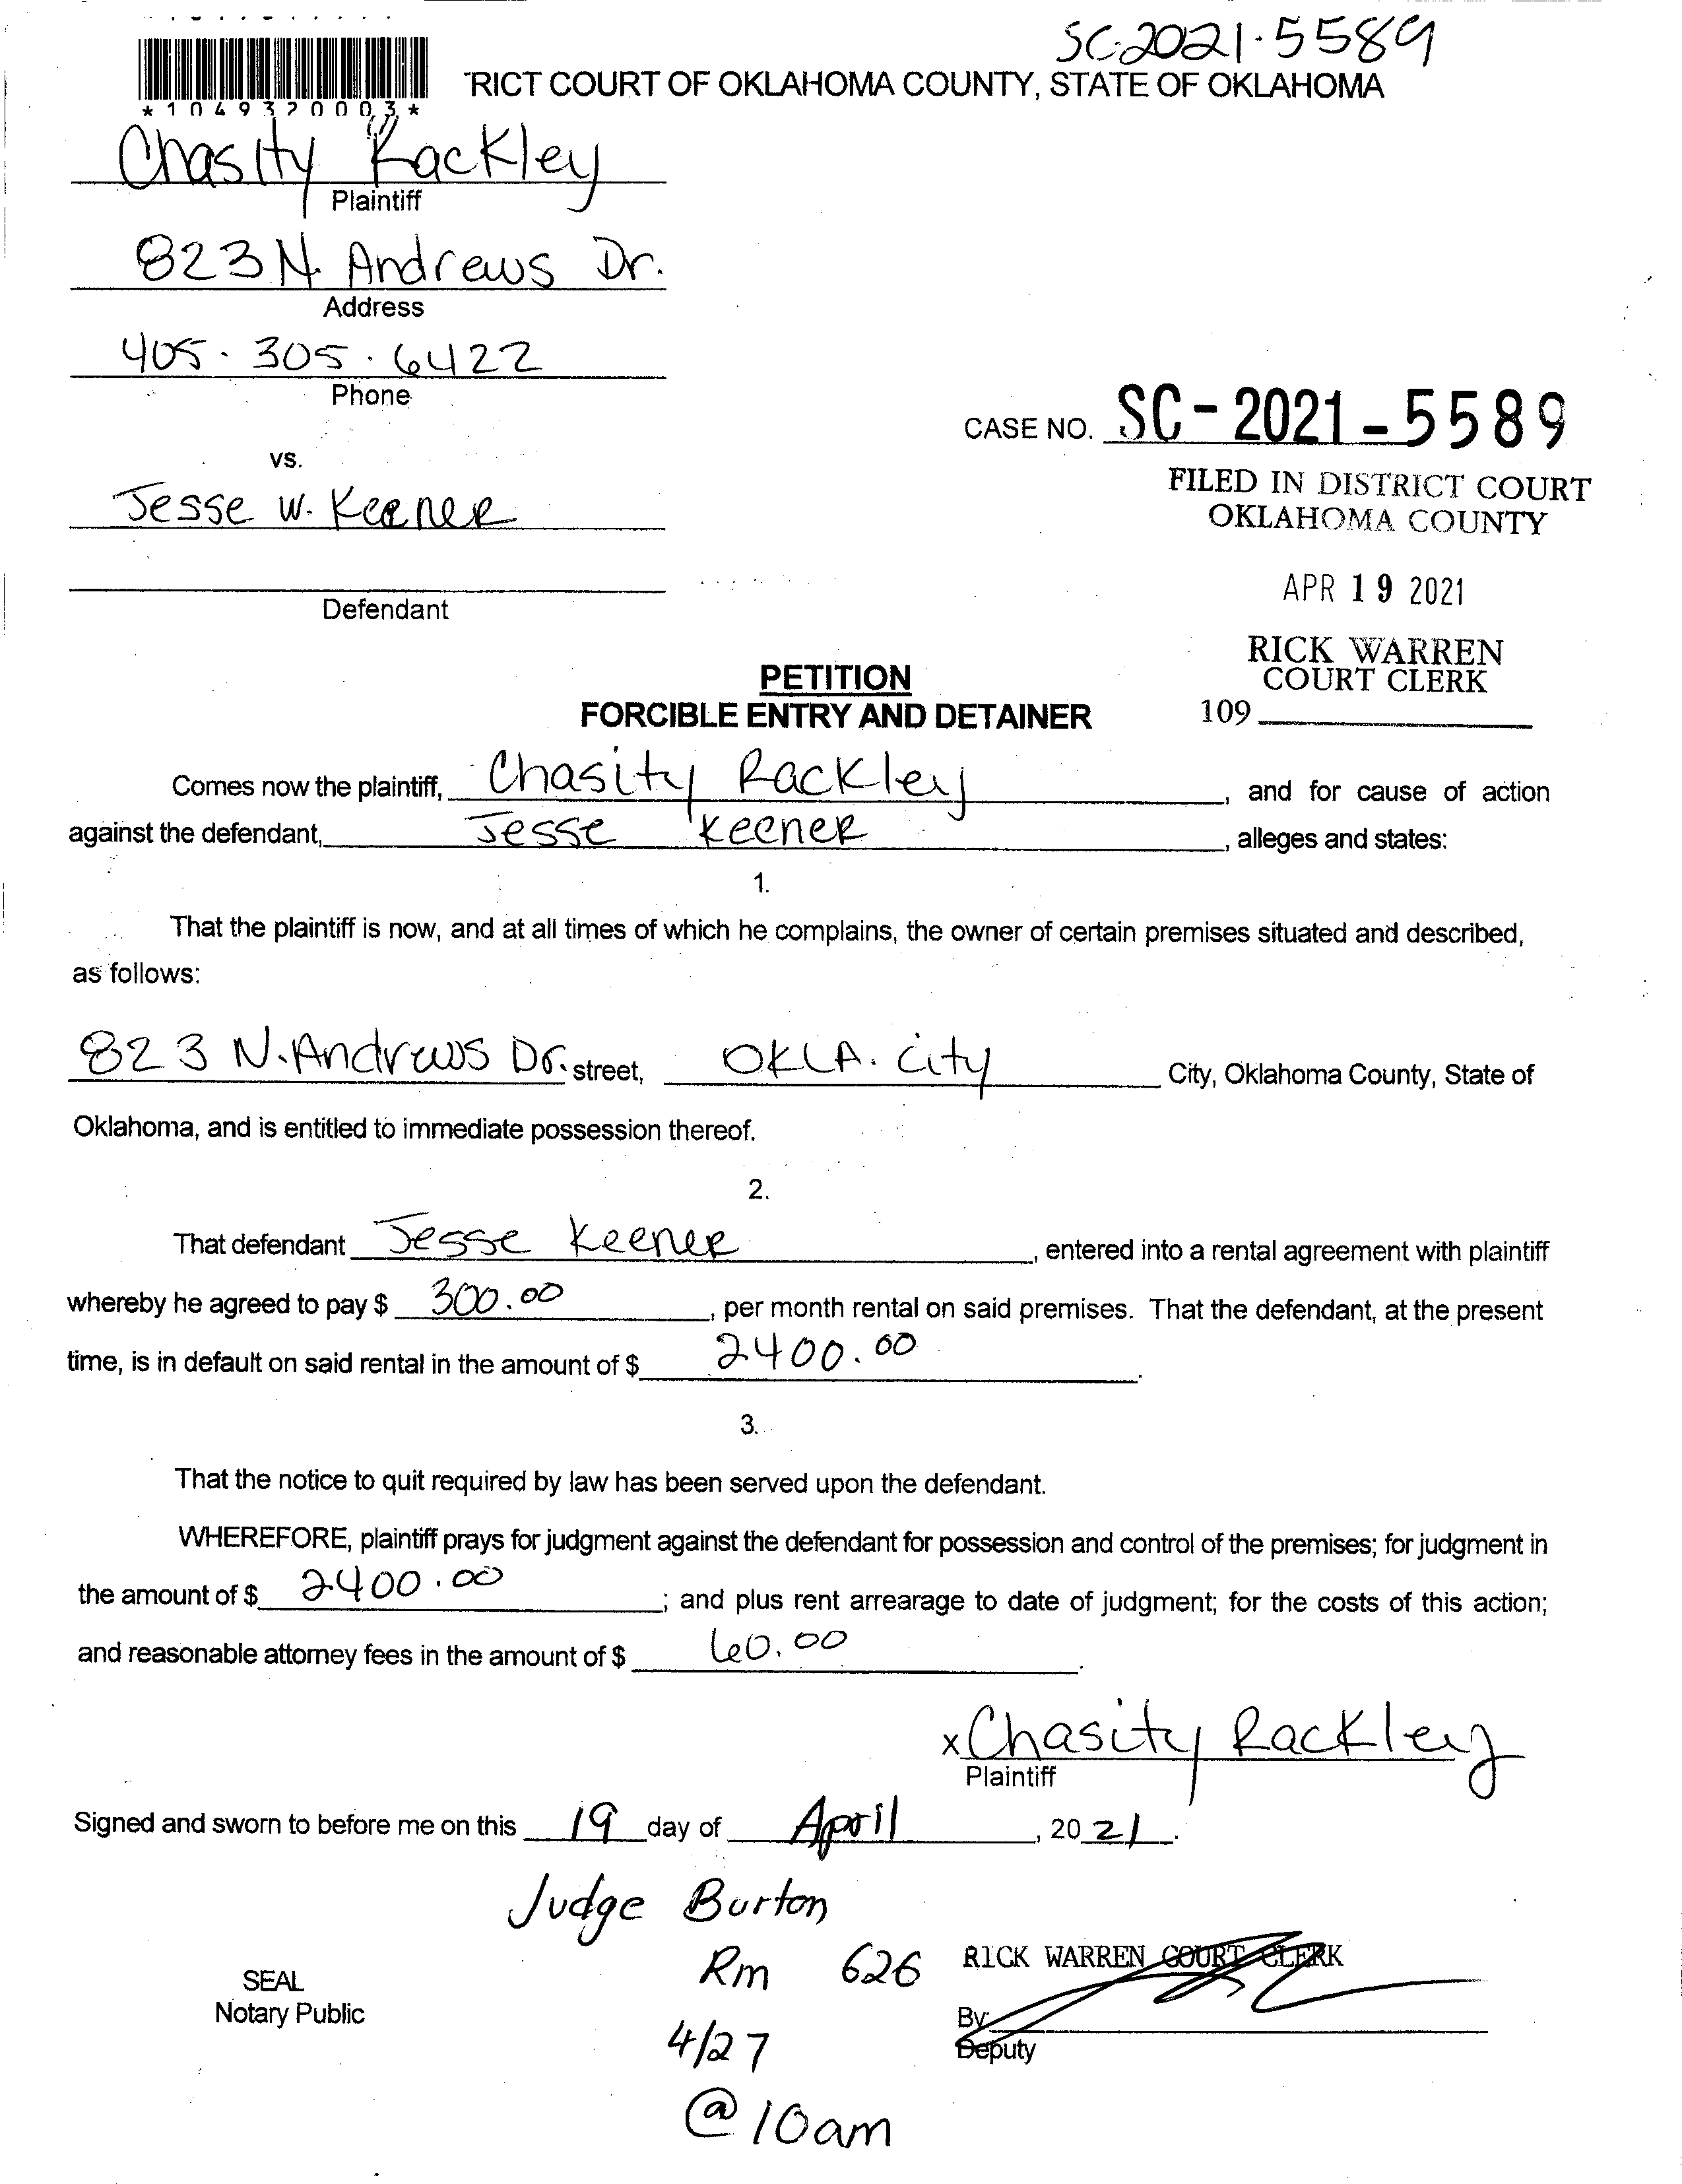 SC-2021-5589
*1049320003*
RICT COURT OF OKLAHOMA COUNTY, STATE OF OKLAHOMA
Chasity Rackley
Plaintiff
823 N. Andrews Dr.
Address
405.305.6422
Phone
CASE NO. SC-2021-5589
vs.
FILED IN DISTRICT COURT
OKLAHOMA COUNTY
Jesse W. Keener
APR 19 2021
Defendant
RICK WARREN
COURT CLERK
109
PETITION
FORCIBLE ENTRY AND DETAINER
Comes now the plaintiff, Chasity Rackley, and for cause of action
against the defendant, Jesse Keener, alleges and states:
1.
That the plaintiff is now, and at all times of which he complains, the owner of certain premises situated and described,
as follows:
823 N. Andrews Dr. street, OKLA. City City, Oklahoma County, State of
Oklahoma, and is entitled to immediate possession thereof.
2.
That defendant Jesse Keener, entered into a rental agreement with plaintiff
whereby he agreed to pay $ 300.00, per month rental on said premises. That the defendant, at the present
time, is in default on said rental in the amount of $ 2400.00.
3.
That the notice to quit required by law has been served upon the defendant.
WHEREFORE, plaintiff prays for judgment against the defendant for possession and control of the premises; for judgment in
the amount of $ 2400.00; and plus rent arrearage to date of judgment; for the costs of this action;
and reasonable attorney fees in the amount of $ 60.00.
x Chasity Rackley
Plaintiff
Signed and sworn to before me on this 19 day of April, 2021.
Judge Burton
Rm 626
RICK WARREN COURT CLERK
SEAL
Notary Public
By:
Deputy
4/27
@ 10am